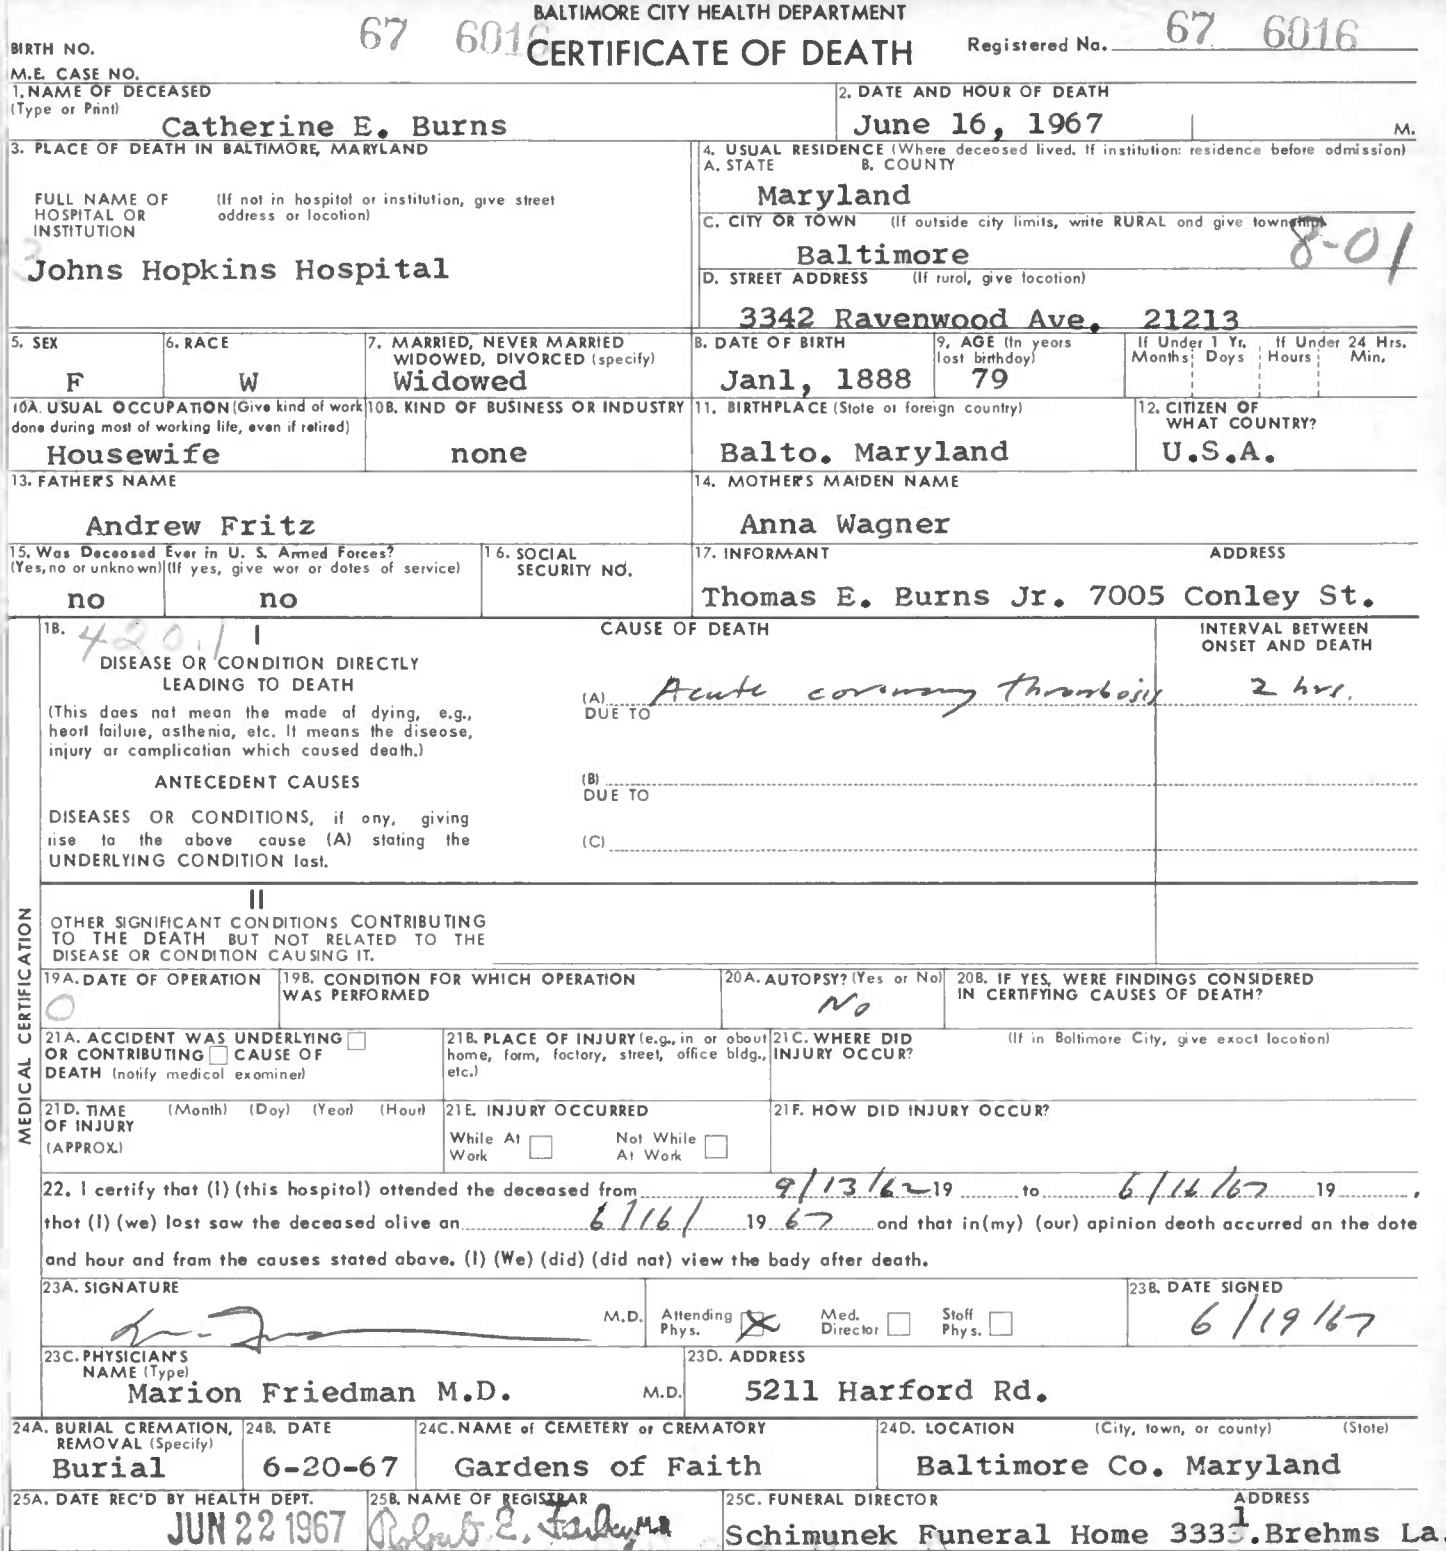 BALTIMORE CITY HEALTH DEPARTMENT
67 6016 CERTIFICATE OF DEATH Registered No. 67 6016
BIRTH NO.
M.E. CASE NO.
1. NAME OF DECEASED
(Type or Print)
Catherine E. Burns
2. DATE AND HOUR OF DEATH
June 16, 1967 M.
3. PLACE OF DEATH IN BALTIMORE, MARYLAND
FULL NAME OF HOSPITAL OR INSTITUTION
(If not in hospital or institution, give street address or location)
Johns Hopkins Hospital
4. USUAL RESIDENCE (Where deceased lived. If institution: residence before admission)
A. STATE B. COUNTY
Maryland
C. CITY OR TOWN (If outside city limits, write RURAL and give township)
Baltimore 8-01
D. STREET ADDRESS (If rural, give location)
3342 Ravenwood Ave. 21213
5. SEX
F
6. RACE
W
7. MARRIED, NEVER MARRIED
WIDOWED, DIVORCED (specify)
Widowed
8. DATE OF BIRTH
Jan1, 1888
9. AGE (In years
last birthday)
79
If Under 1 Yr. If Under 24 Hrs.
Months Days Hours Min.
10A. USUAL OCCUPATION (Give kind of work
done during most of working life, even if retired)
Housewife
10B. KIND OF BUSINESS OR INDUSTRY
none
11. BIRTHPLACE (State or foreign country)
Balto. Maryland
12. CITIZEN OF
WHAT COUNTRY?
U.S.A.
13. FATHER'S NAME
Andrew Fritz
14. MOTHER'S MAIDEN NAME
Anna Wagner
15. Was Deceased Ever in U. S. Armed Forces?
(Yes, no or unknown) (If yes, give war or dates of service)
no no
16. SOCIAL
SECURITY NO.
17. INFORMANT ADDRESS
Thomas E. Burns Jr. 7005 Conley St.
MEDICAL CERTIFICATION
18. 420.1 I
DISEASE OR CONDITION DIRECTLY
LEADING TO DEATH
(This does not mean the mode of dying, e.g.,
heart failure, asthenia, etc. It means the disease,
injury or complication which caused death.)
ANTECEDENT CAUSES
DISEASES OR CONDITIONS, if any, giving
rise to the above cause (A) stating the
UNDERLYING CONDITION last.
CAUSE OF DEATH
(A) Acute coronary thrombosis
DUE TO
(B)
DUE TO
(C)
INTERVAL BETWEEN
ONSET AND DEATH
2 hrs.
II
OTHER SIGNIFICANT CONDITIONS CONTRIBUTING
TO THE DEATH BUT NOT RELATED TO THE
DISEASE OR CONDITION CAUSING IT.
19A. DATE OF OPERATION
0
19B. CONDITION FOR WHICH OPERATION
WAS PERFORMED
20A. AUTOPSY? (Yes or No)
No
20B. IF YES, WERE FINDINGS CONSIDERED
IN CERTIFYING CAUSES OF DEATH?
21A. ACCIDENT WAS UNDERLYING
OR CONTRIBUTING CAUSE OF
DEATH (notify medical examiner)
21B. PLACE OF INJURY (e.g., in or about
home, farm, factory, street, office bldg.,
etc.)
21C. WHERE DID (If in Baltimore City, give exact location)
INJURY OCCUR?
21D. TIME (Month) (Day) (Year) (Hour)
OF INJURY
(APPROX.)
21E. INJURY OCCURRED
While At Work Not While At Work
21F. HOW DID INJURY OCCUR?
22. I certify that (I) (this hospital) attended the deceased from 9/13/62 19 to 6/16/67 19 ,
that (I) (we) last saw the deceased alive an 6/16/ 19 67 and that in(my) (our) apinion death accurred an the date
and hour and from the causes stated above. (I) (We) (did) (did nat) view the body after death.
23A. SIGNATURE
M.D. Attending Phys. Med. Director Staff Phys.
23B. DATE SIGNED
6/19/67
23C. PHYSICIAN'S
NAME (Type)
Marion Friedman M.D. M.D.
23D. ADDRESS
5211 Harford Rd.
24A. BURIAL CREMATION,
REMOVAL (Specify)
Burial
24B. DATE
6-20-67
24C. NAME of CEMETERY or CREMATORY
Gardens of Faith
24D. LOCATION (City, town, or county) (State)
Baltimore Co. Maryland
25A. DATE REC'D BY HEALTH DEPT.
JUN 22 1967
25B. NAME OF REGISTRAR
Robert E. Farber MD
25C. FUNERAL DIRECTOR ADDRESS
Schimunek Funeral Home 3331.Brehms La.